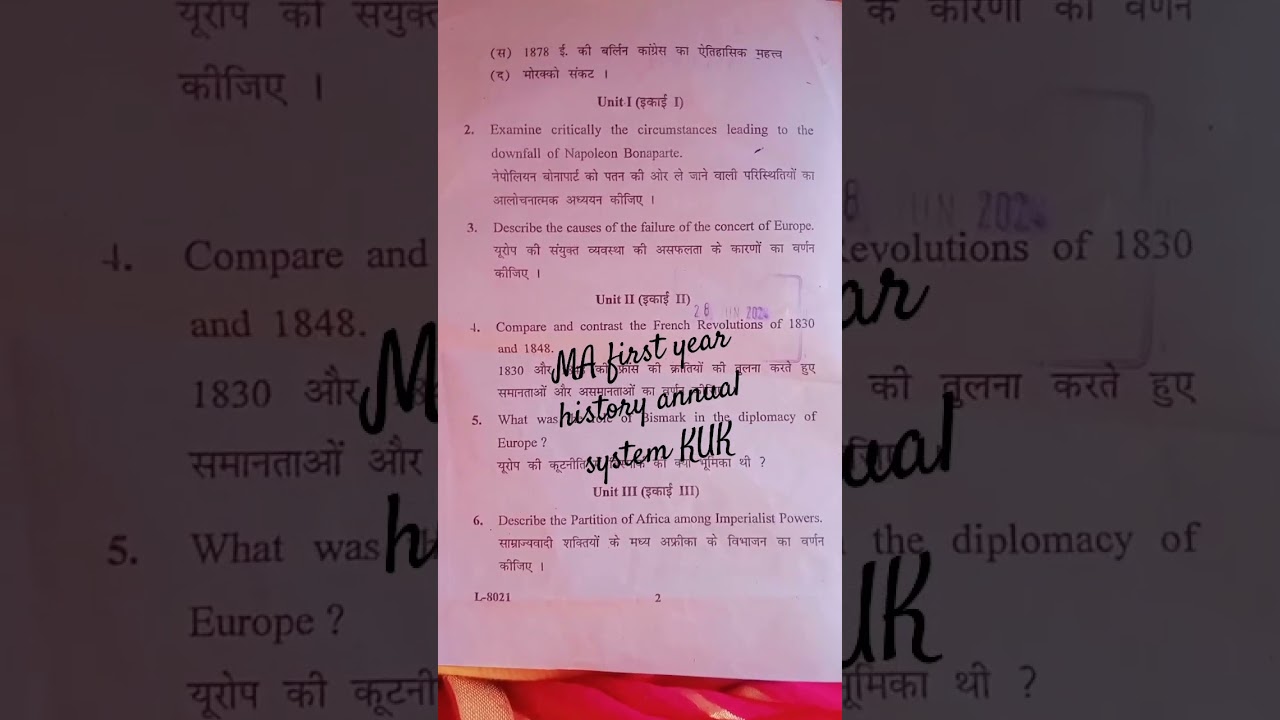 (स) 1878 ई. की बर्लिन कांग्रेस का ऐतिहासिक महत्त्व
(द) मोरक्को संकट ।
Unit I (इकाई I)
2. Examine critically the circumstances leading to the
downfall of Napoleon Bonaparte.
नेपोलियन बोनापार्ट को पतन की ओर ले जाने वाली परिस्थितियों का
आलोचनात्मक अध्ययन कीजिए ।
3. Describe the causes of the failure of the concert of Europe.
यूरोप की संयुक्त व्यवस्था की असफलता के कारणों का वर्णन
कीजिए ।
Unit II (इकाई II)
28 JUN 2024
4. Compare and contrast the French Revolutions of 1830
and 1848.
1830 और की फ्रांस की क्रांतियों की तुलना करते हुए
समानताओं और असमानताओं का वर्णन
MA first year
history annual
system KUK
5. What was role of Bismark in the diplomacy of
Europe ?
यूरोप की कूटनीति की क्या भूमिका थी ?
Unit III (इकाई III)
6. Describe the Partition of Africa among Imperialist Powers.
साम्राज्यवादी शक्तियों के मध्य अफ्रीका के विभाजन का वर्णन
कीजिए ।
L-8021 2